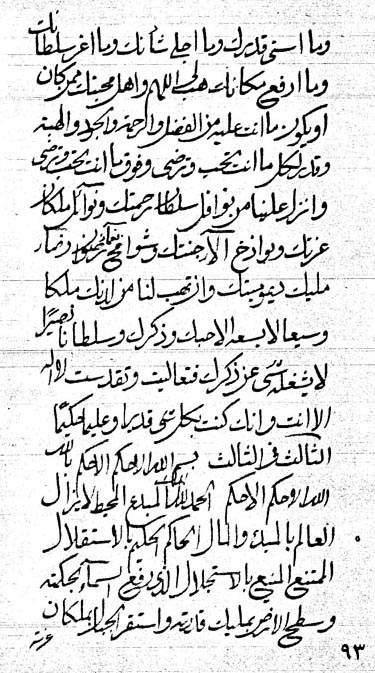 وما اسنى قدرك وما اجلى شأنك وما اعز سلطانك
وما ارفع مكانك هب لى اللهم واهل محبتك ممن كان
او يكون ما انت عليه من الفضل والرحمة والجود والهبة
وقدر لكل ما انت تحب وترضى وفوق ما انت تحب وترضى
وانزل علينا من نوافل سلطان رحمتك ونوآئل ملكان
عزتك وبواذخ آلآء جنتك وشوامخ
مليك ديموميتك وان تهب لنا من لدنك ملكا
وسيعا لا يسعه الا حبك وذكرك وسلطانا نصيرا
لا يشغله شئ عن ذكرك فتعاليت وتقدست لا اله
الا انت وانك كنت بكل شئ قديرا وعليما حكيما
الثالث فى الثالث بسم الله الاحكم الاحكم بالله
الله الاحكم الاحكم الحمد لله المبدع المحيط لا يزال
العالم بالمبدء والمآل الحاكم الحكيم بالاستقلال
الممتنع المنيع بالاستجلال الذى رفع السمآء بحكمته
وسطح الارض بمليك قدرته واستقر الجبال بملكان
عزته
٩٣